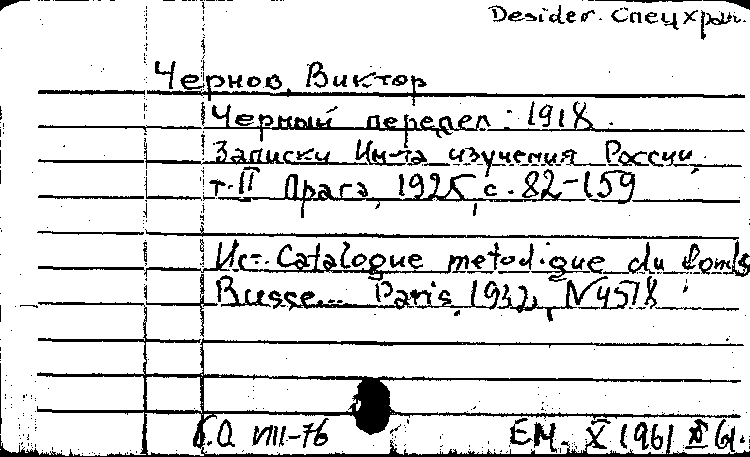 Desider. Спецхран.
Чернов, Виктор
Черный передел : 1918.
Записки Ин-та изучения России,
т. II Прага, 1925, с. 82-159
Ист. Catalogue metodique du fonds
Busse... Paris, 1932, N 4578
Б.О. VIII-76 ЕМ. X 1961